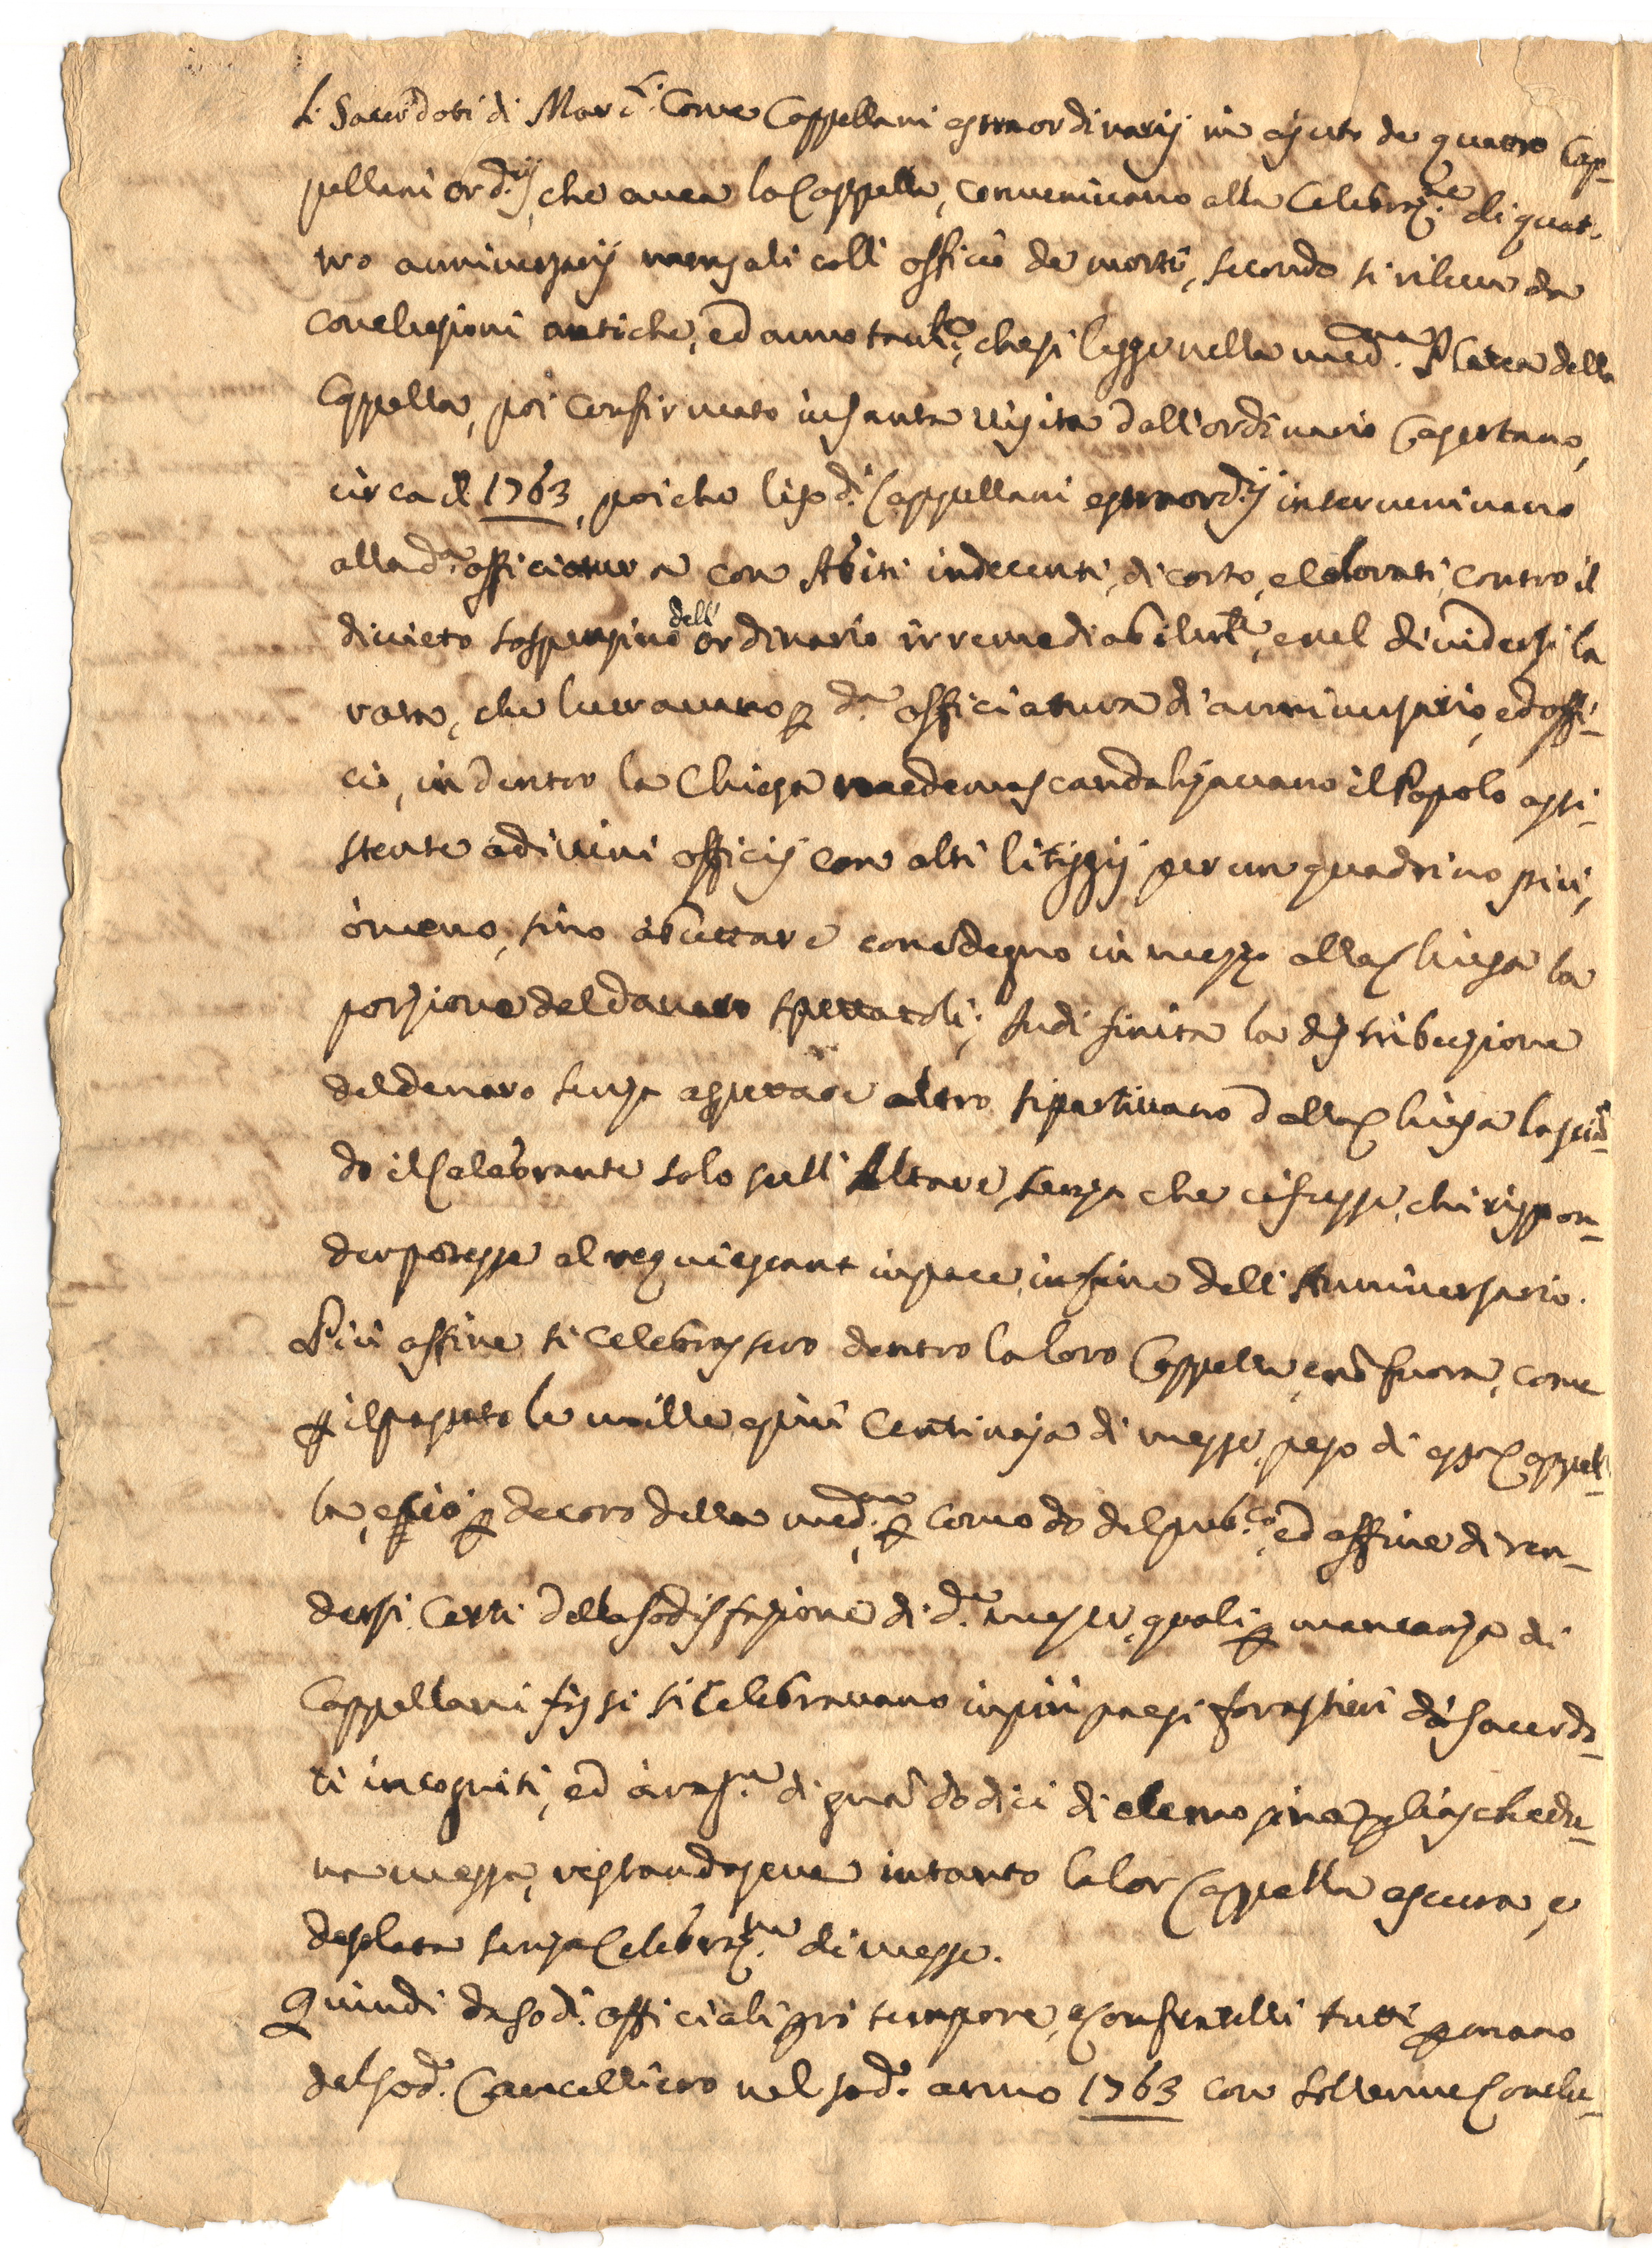 Li Sacerdoti di Marc.i Come Cappellani estraordinarij in ajuto de quattro Cap-
pellani ord.ij, che avea la Cappella, convenivano alla Celebraz.ne di quat-
tro anniversarij mensali coll' officio de morti, secondo si rileva da
conclusioni antiche, ed annotam.to, che si legge nella med.ma Platea della
Cappella, poi confirmato in santa visita dall'ordinario Casertano,
circa il 1763, poiche li sod.i Cappellani estraord.ij intervenivano
alla d.a officiatura con Abiti indecenti, di corto, e colorati, contro il
divieto sospensivo dell' ordinario irremediabilm.te, e nel dividersi la
rata, che lucravano p d.a officiatura di anniversario, ed offi-
cio, in dentro la Chiesa medema scandalizavano il Popolo assi-
stente a divini officij con alti litiggij per un quadrino più,
ò meno, sino a buttare con isdegno in mezzo alla Chiesa la
porzione del danaro spettatoli; Indi finita la distribuzione
del denaro senza aspettare altro si partivano dalla Chiesa lascian-
do il Celebrante solo sull' Altare, senza che ci fusse, chi rispon-
der potesse al requiescant in pace, in fine dell' Anniversario.
Più affine si celebrassero dentro la loro Cappella, e nò fuora, come
p il passato le mille, e più Centinaja di messe, peso di essa Cappel-
la, e ciò p decoro della med.ma, p comodo del pub.co, ed affine di ren-
dersi Certi della sodisfazione di d.e messe, quali p mancanza di
Cappellani fissi si celebravano in più paesi forastieri da Sacerdo-
ti incogniti, ed à rag.ne di grana dodici di elemosina p ciaschedu-
na messa, restandosene intanto la lor Cappella oscura, e
desolata senza Celebraz.ne di messe.
Quindi da sod.i officiali pro tempore, e Confratelli tutti p mano
del sod.o Cancelliero nel sod.o anno 1763 con solenne Conclu-